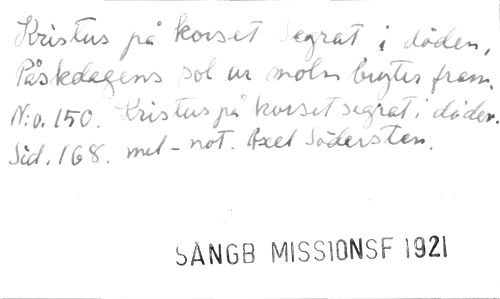 Kristus på korset segrat i döden,
Påskdagens sol ur moln bryter fram.
N:o. 150. Kristus på korset segrat i döden.
Sid. 168. mel-not. Axel Södersten.
SÅNGB MISSIONSF 1921